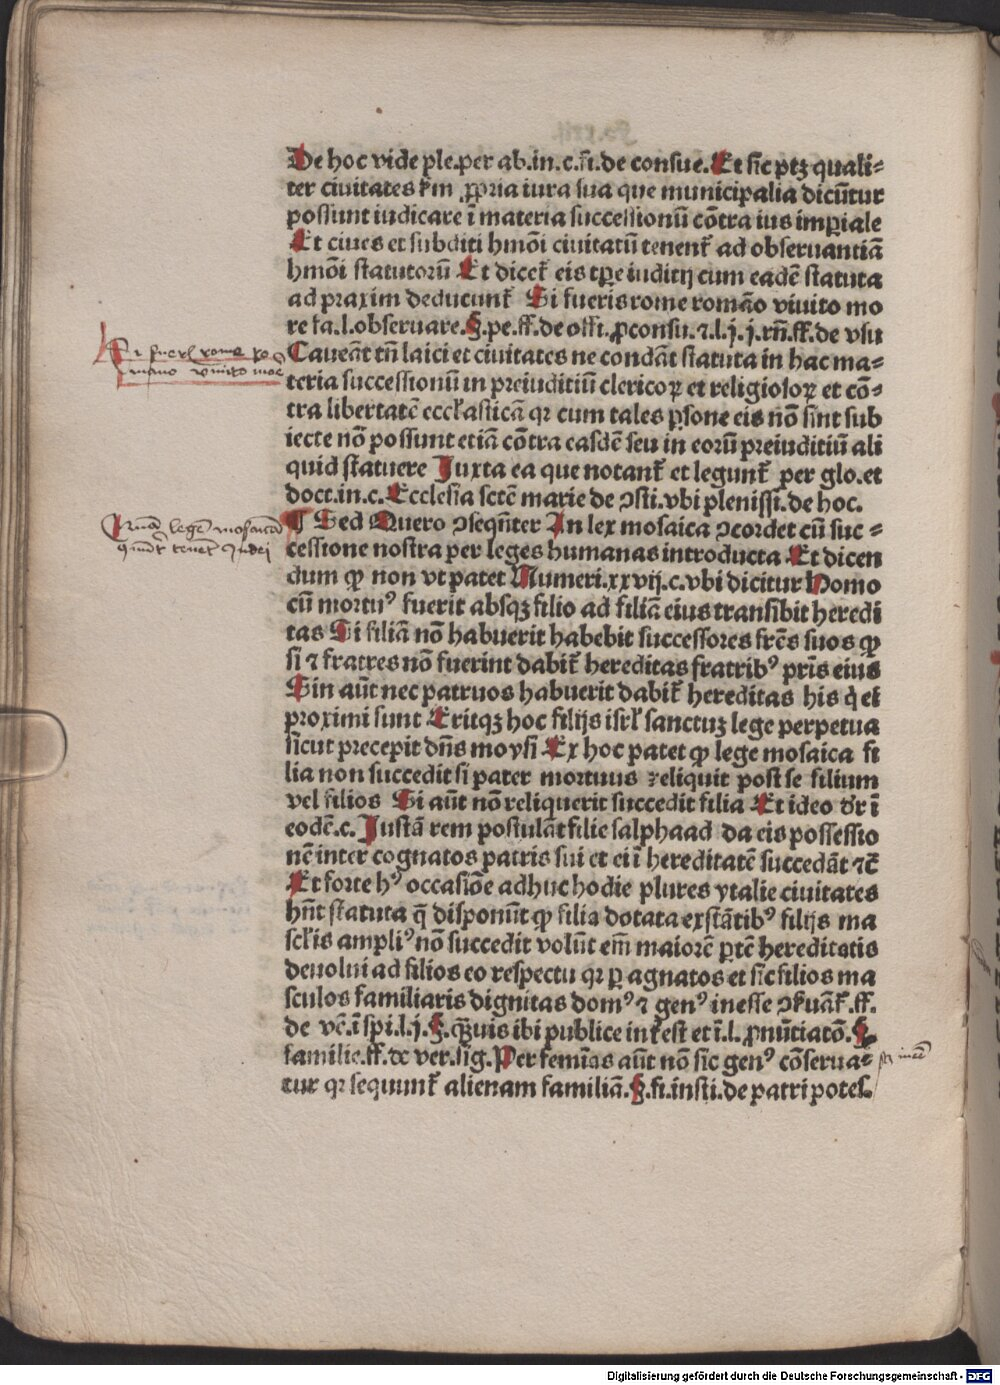 De hoc vide ple.per ab.in.c.fi.de consue.Et sic ptꝫ quali⸗
ter ciuitates km ꝓpria iura sua que municipalia dicūtur
possunt iudicare ī materia successionū cōtra ius imperiale
Et ciues et subditi hmōi ciuitatū tenent̄ ad obseruantiā
hmōi statutorū Et dicet̄ eis tꝑe iuditij cum eadē statuta
ad praxim deducunt̄ Si fueris rome romāo viuito mo
re fa.l.obseruare.§.pe.ff.de offi.ꝓconsu.⁊.l.j.j.rn̄.ff.de vsu
Caueāt tn̄ laici et ciuitates ne condāt statuta in hac ma⸗
teria successionū in preiuditiū clericoꝝ et religiosoꝝ et cō⸗
tra libertatē eccl̄asticā qꝛ cum tales ꝑsone eis nō sint sub
iecte nō possunt etiā cōtra easdē seu in eorū preiuditiū ali
quid statuere Iuxta ea que notant̄ et legunt̄ per glo.et
doct.in.c.Ecclesia sctē marie de ꝯsti.vbi plenissi.de hoc.
¶ Sed Quero ꝯseqn̄ter An lex mosaica ꝯcordet cū suc⸗
cessione nostra per leges humanas introducta Et dicen
dum ꝙ non vt patet Numeri.xxvij.c.vbi dicitur Homo
cū mortuꝰ fuerit absqꝫ filio ad filiā eius transibit heredi
tas Si filiā nō habuerit habebit successores frēs suos ꝙ
si ⁊ fratres nō fuerint dabit̄ hereditas fratribꝰ pr̄is eius
Sin aūt nec patruos habuerit dabit̄ hereditas his q̇ ei
proximi sunt Eritqꝫ hoc filijs isrl̄ sanctuꝫ lege perpetua
sicut precepit dn̄s moysi Ex hoc patet ꝙ lege mosaica fi
lia non succedit si pater mortuus reliquit post se filium
vel filios Si aūt nō reliquerit succedit filia Et ideo dr̄ ī
eodē.c.Iustā rem postulāt filie salphaad da eis possessio
nē inter cognatos patris sui et ei ī hereditatē succedāt ⁊c̄
Et forte hꝰ occasiōe adhuc hodie plures ytalie ciuitates
hn̄t statuta q̄ disponūt ꝙ filia dotata exstātibꝰ filijs ma
scl̄is ampliꝰ nō succedit volūt em̄ maiorē ꝑtē hereditatis
deuolui ad filios eo respectu qꝛ ꝑ agnatos et sic filios ma
sculos familiaris dignitas domꝰ ⁊ genꝰ inesse ꝯẜuāt̄.ff.
de vē.īspi.l.j.§.q̄uis ibi publice int̄est et ī.l.ꝓnūtiatō.§.
familie.ff.de ver.sig.Per femīas aūt nō sic genꝰ cōserua⸗
tur qꝛ sequunt̄ alienam familiā.§.fi.insti.de patri potes.
Si fuerꝭ rome ro
mano viuito more
legē mosaicā
tenent̄ Judei